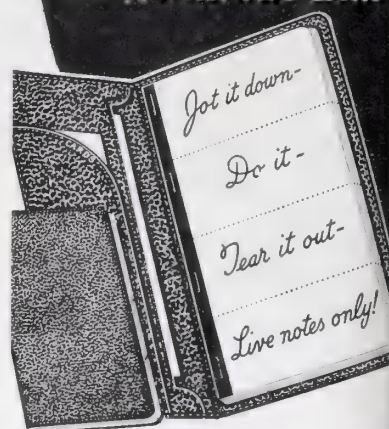 Jot it down-
Do it -
Tear it out-
Live notes only!